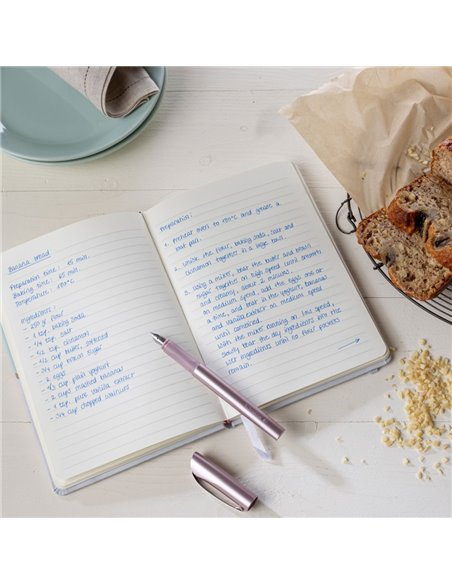 Banana bread
Preparation time: 15 min.
Baking time: 65 min.
Temperature: 180°C
Ingredients:
- 250 gr flour
- 1 tsp. baking soda
- 1/4 tsp. salt
- 1/2 tsp. cinnamon
- 1/2 cup butter, softened
- 3/4 cup brown sugar
- 2 eggs
- 1/3 cup plain yogurt
- 2 cups mashed bananas
- 1 tsp. pure vanilla extract
- 3/4 cup chopped walnuts
Preparation:
1. Preheat oven to 180°C and grease a
loaf pan.
2. Whisk the flour, baking soda, salt and
cinnamon together in a large bowl.
3. Using a mixer, beat the butter and brown
sugar together on high speed until smooth
and creamy, about 2 minutes.
on medium speed, add the eggs one at
a time, and beat in the yogurt, banana
and vanilla extract on medium speed
until combined.
With the mixer running on low speed,
slowly beat the dry ingredients into the
wet ingredients until no flour pockets
remain.